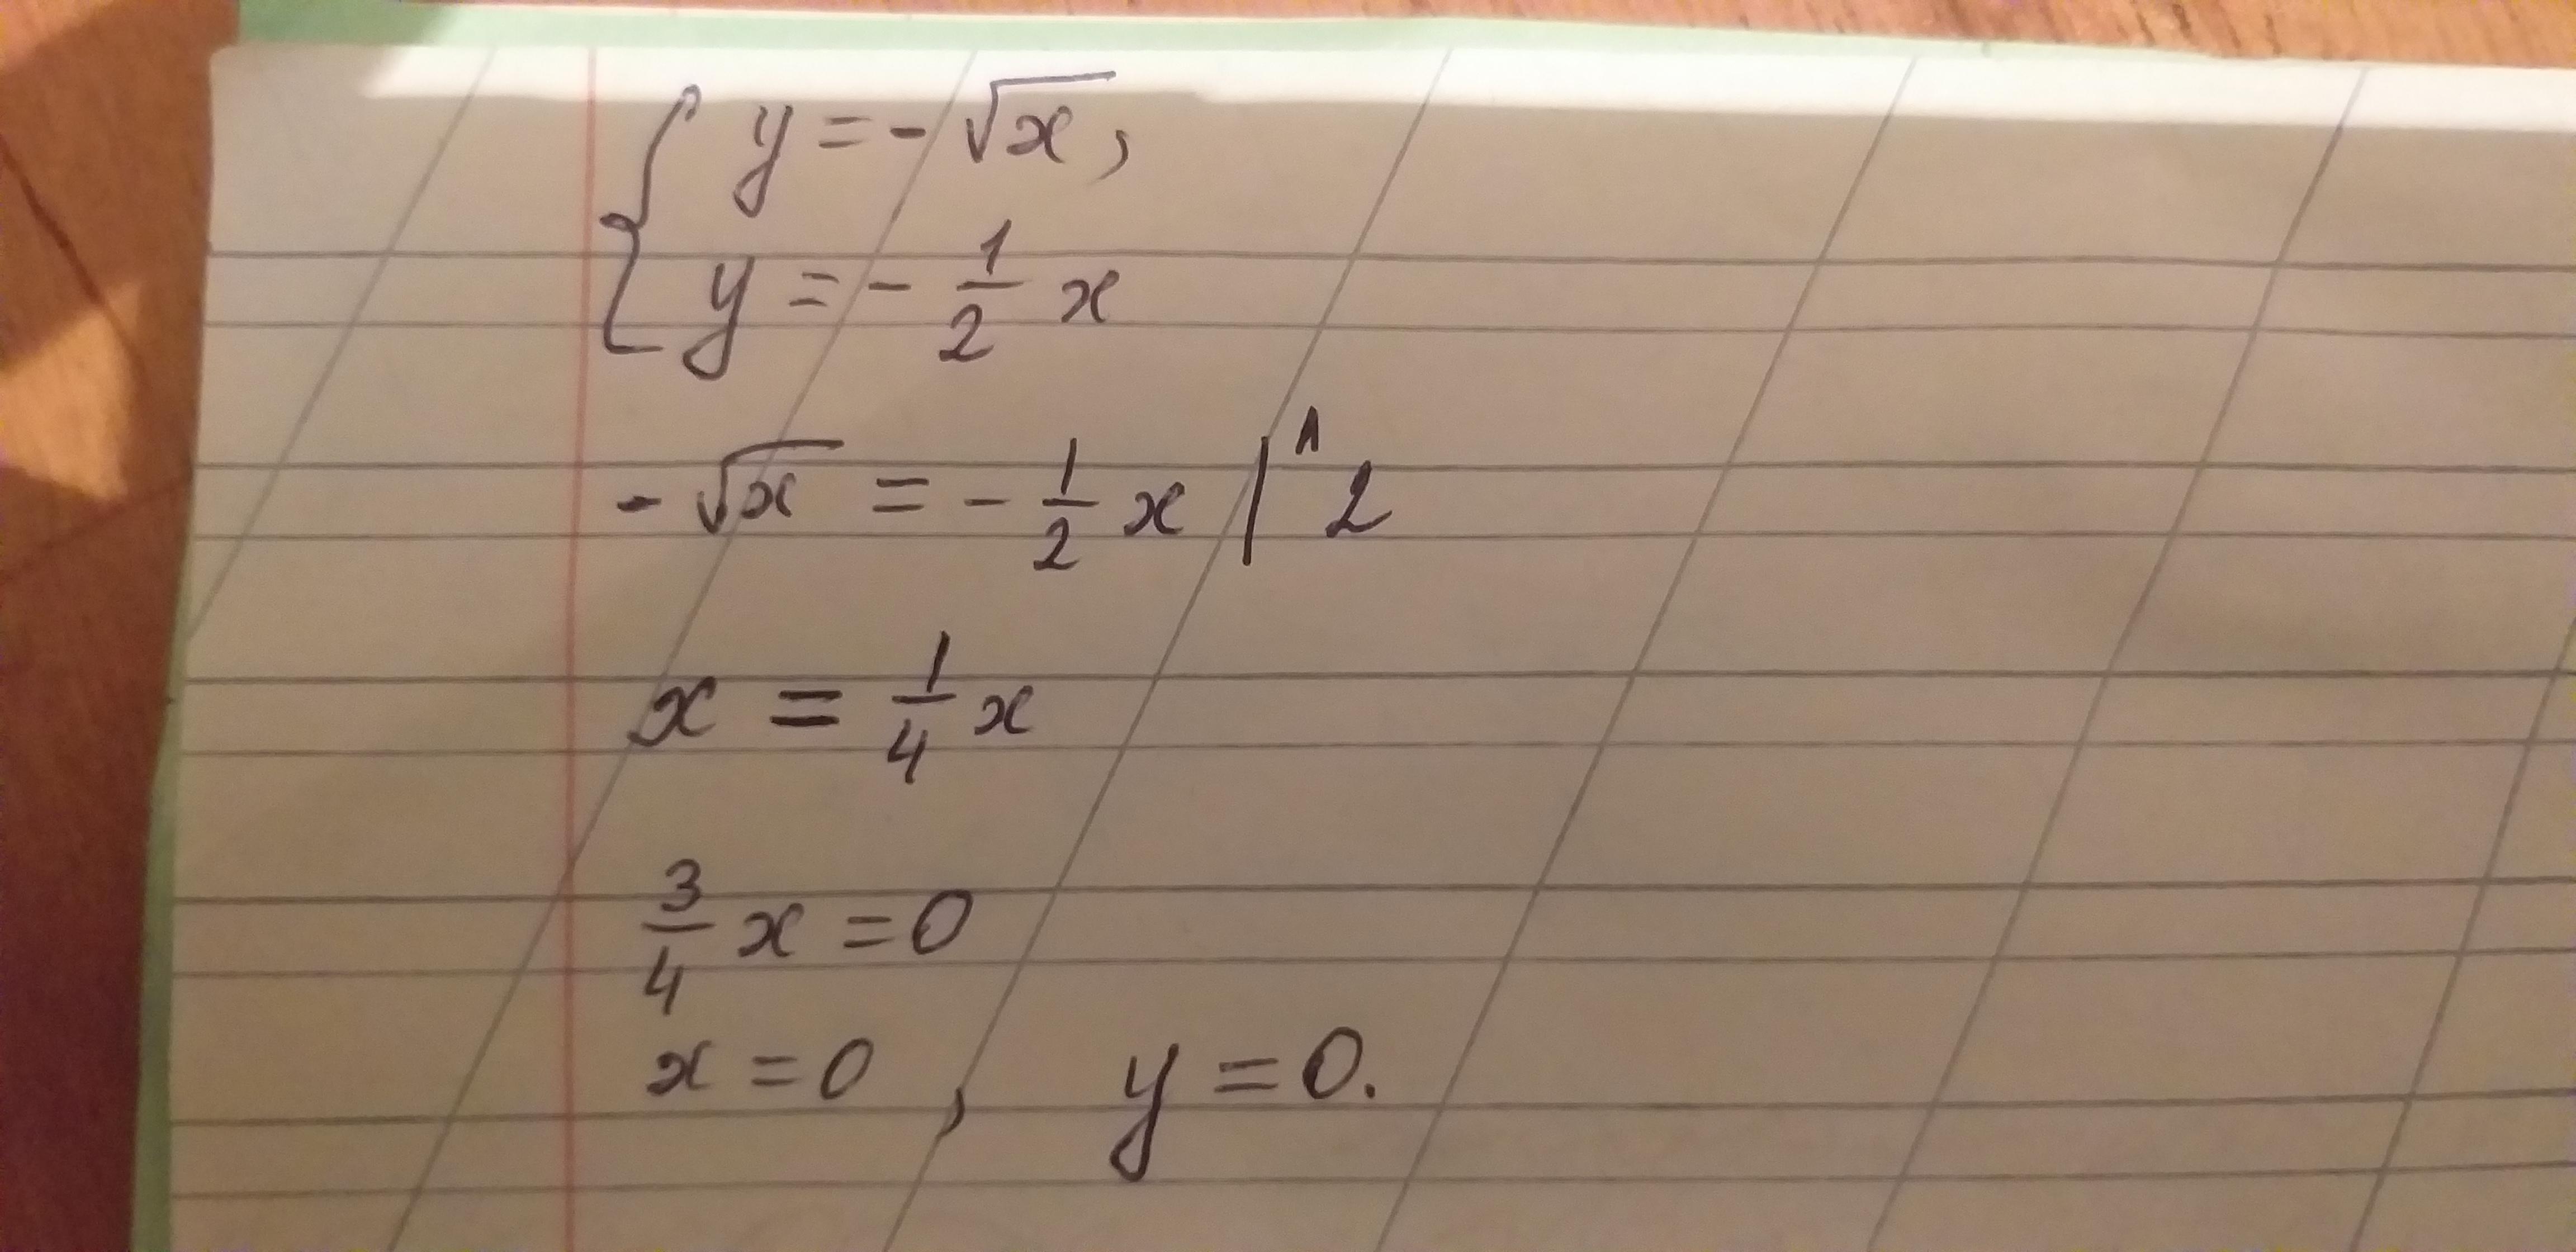 { y = - √x,
y = - 1/2 x
- √x = - 1/2 x | ^ 2
x = 1/4 x
3/4 x = 0
x = 0 , y = 0.